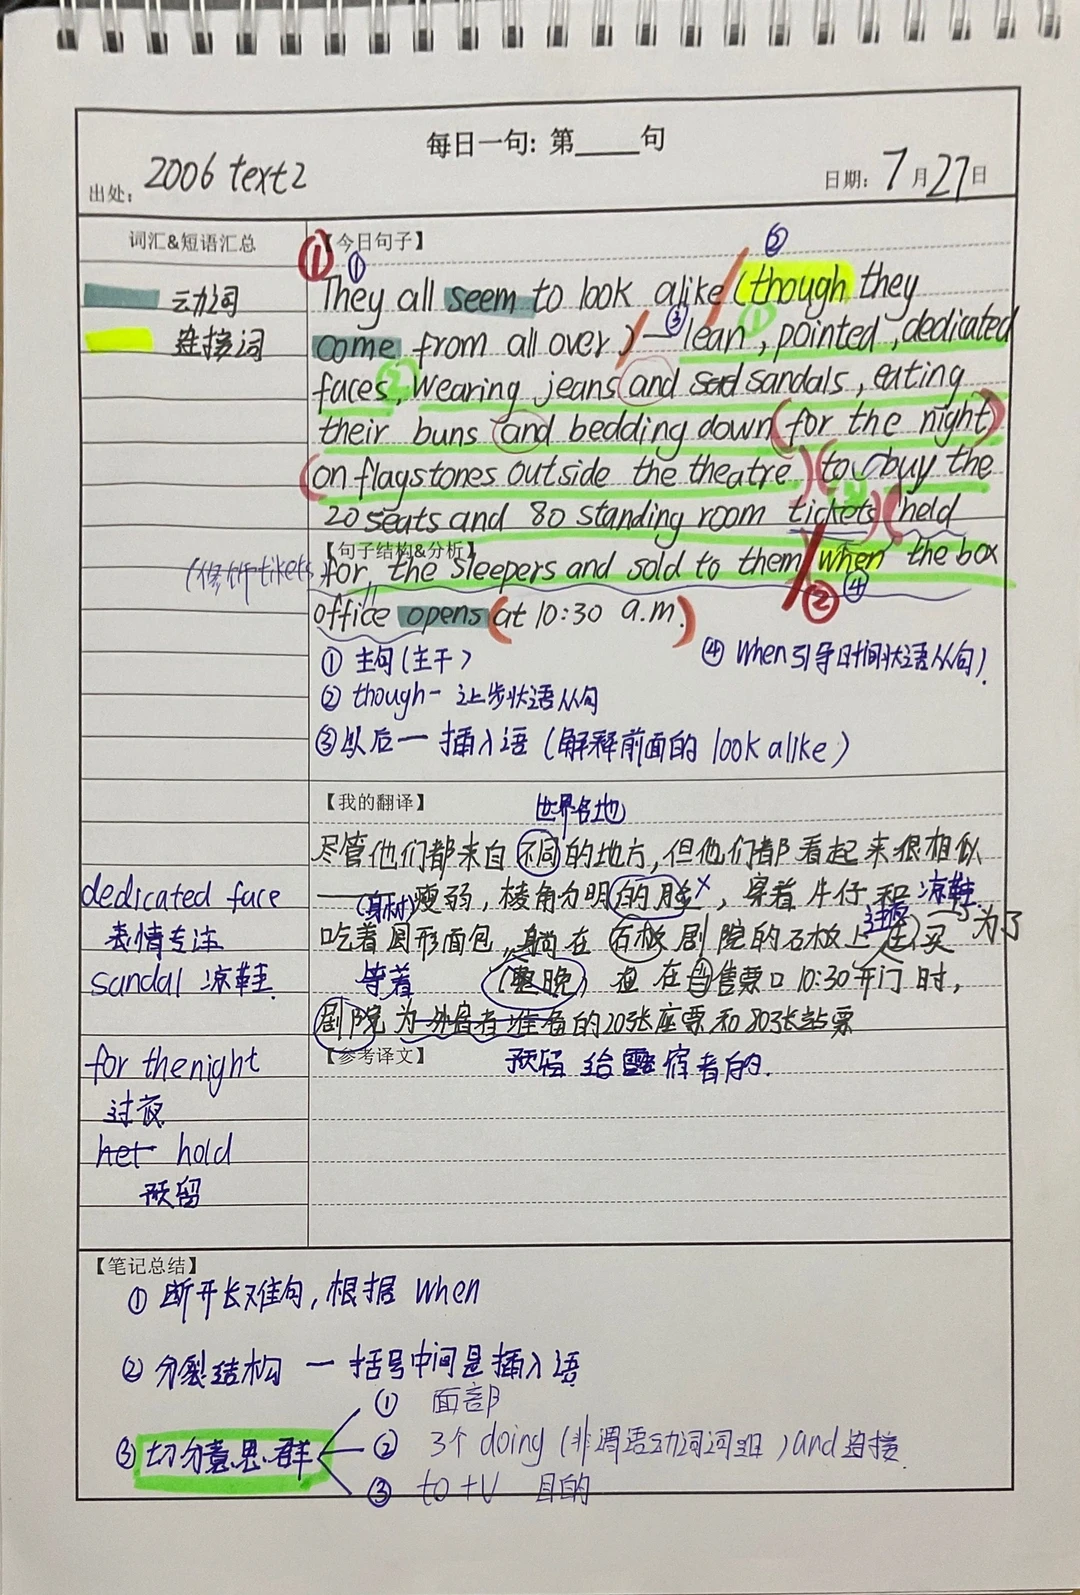 每日一句: 第____句
出处: 2006 text2
日期: 7月27日
词汇&短语汇总
动词
连接词
【今日句子】
① ① ②
They all seem to look alike (though they
come from all over) — ③ lean ①, pointed, dedicated
faces, ② wearing jeans and sandals, eating
their buns and bedding down (for the night)
(on flagstones outside the theatre) (to buy the
20 seats and 80 standing room tickets) (held
【句子结构&分析】
(修饰tikets for the sleepers and sold to them when the box
② ④
office opens (at 10:30 a.m.)
① 主句(主干)
④ When引导时间状语从句).
② though- 让步状语从句
③以后一 插入语 (解释前面的 look alike)
【我的翻译】
世界各地
尽管他们都来自不同的地方,但他们都看起来很相似
——(身材)瘦弱,棱角分明的脸×,穿着牛仔和凉鞋
吃着圆形面包,躺在石板剧院的石板上 过夜 买 为了
等着 (整晚) 在售票口10:30开门时,
剧院为外宿者准备的20张座票和80张站票
【参考译文】
预留 给露宿者的.
dedicated face
表情专注
sandal 凉鞋
for thenight
过夜
het hold
预留
【笔记总结】
① 断开长难句,根据 when
② 分裂结构 一 括号中间是插入语
③ 切分意思群
① 面部
② 3个 doing (非谓语动词词组) and 连接
③ to +V 目的